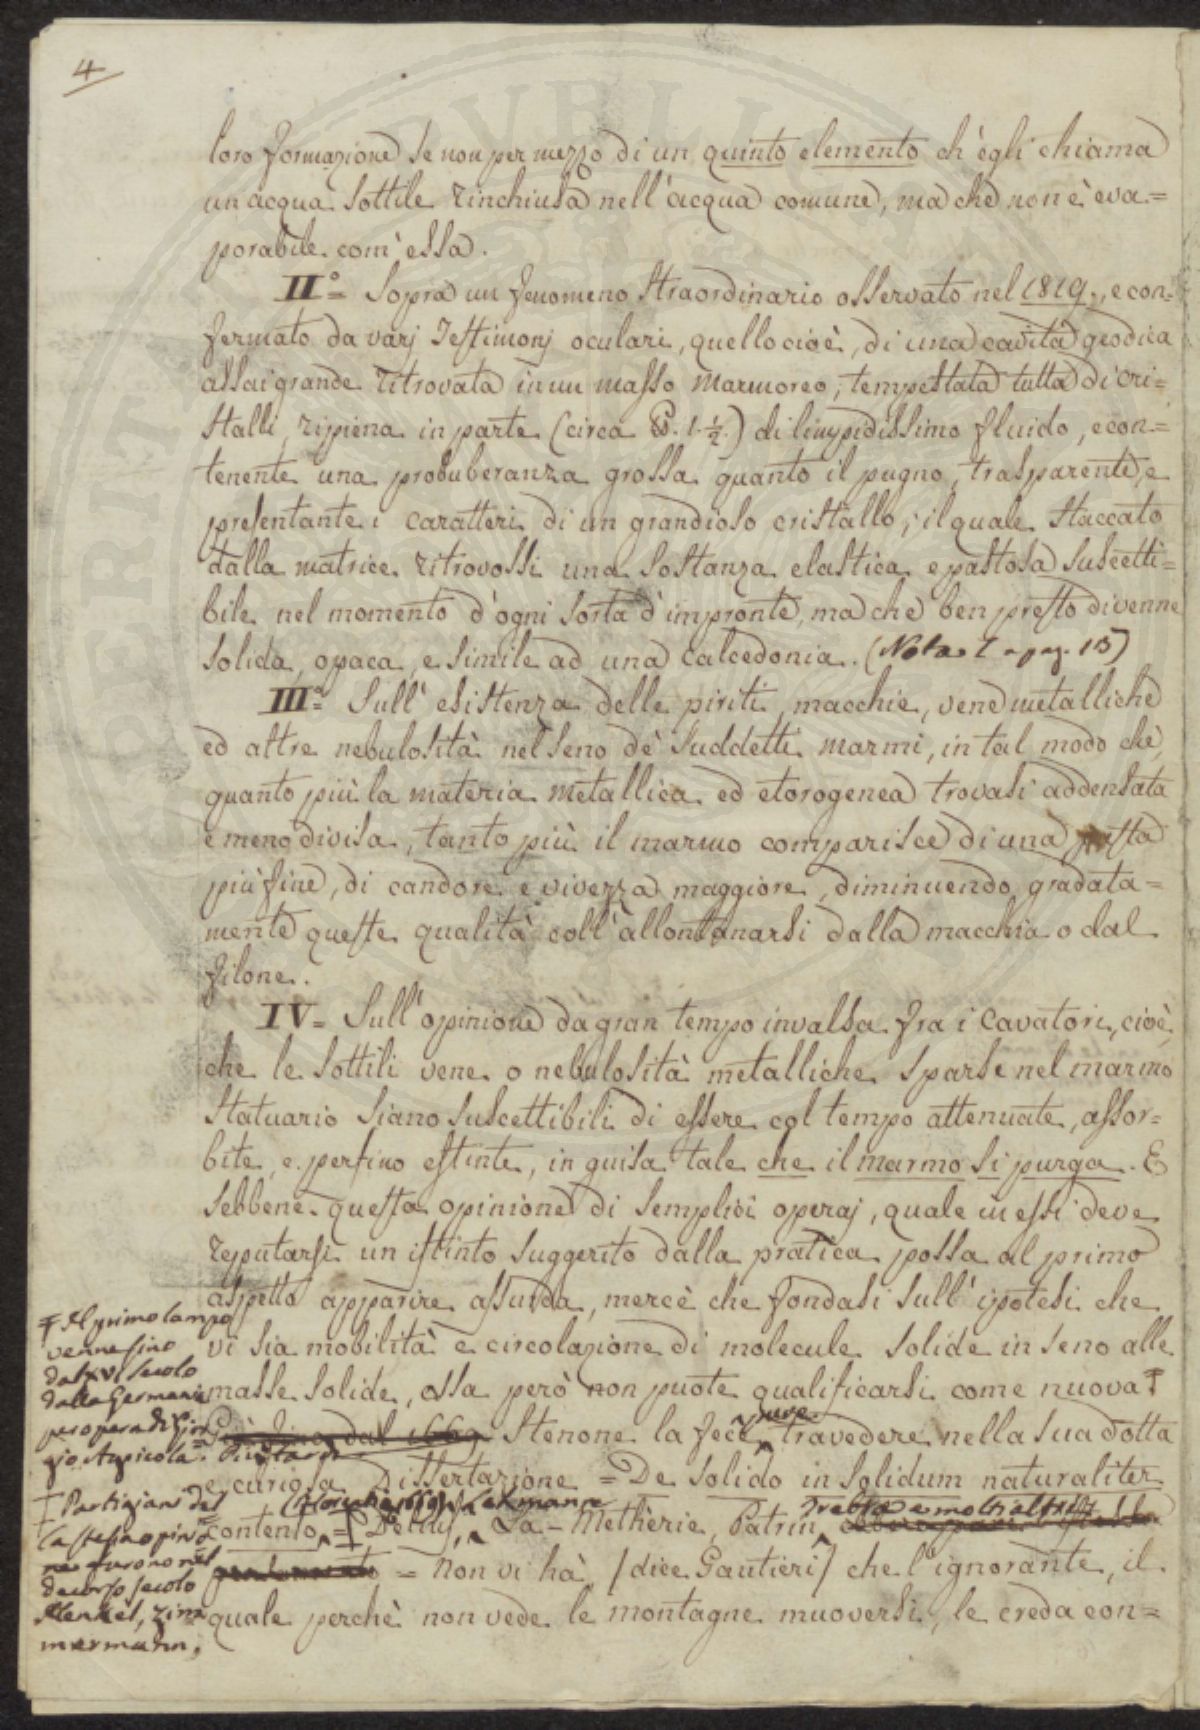 4
loro formazione se non per mezzo di un quinto elemento ch'egli chiama
un'acqua sottile rinchiusa nell'acqua comune, ma che non è eva=
porabile com'essa.
II.° = Sopra un fenomeno straordinario osservato nel 1819., e con=
fermato da varj Testimonj oculari, quello cioè, di una cavità geodica
assai grande ritrovata in un masso marmoreo, tempestata tutta di cri=
stalli, ripiena in parte (circa . 1 ½.) di limpidissimo fluido, e con=
tenente una probuberanza grossa quanto il pugno, trasparente, e
presentante i caratteri di un grandioso cristallo; il quale staccato
dalla matrice ritrovossi una sostanza elastica e pastosa suscetti=
bile nel momento d'ogni sorta d'impronte, ma che ben presto divenne
solida, opaca, e simile ad una calcedonia. (Nota 1 a pag. 15)
III.° = Sull'esistenza delle piriti, macchie, vene metalliche
ed altre nebulosità nel seno de' suddetti marmi, in tal modo che,
quanto più la materia metallica ed etorogenea trovasi addensata
e meno divisa, tanto più il marmo comparisce di una pasta
più fine, di candore e vivezza maggiore, diminuendo gradata=
mente queste qualità coll'allontanarsi dalla macchia o dal
filone.
IV = Sull'opinione da gran tempo invalsa fra i Cavatori, cioè,
che le sottili vene o nebulosità metalliche sparse nel marmo
statuario siano suscettibili di essere col tempo attenuate, assor=
bite, e perfino estinte, in guisa tale che il marmo si purga. E
sebbene questa opinione di semplici operaj, quale in essi deve
reputarsi un istinto suggerito dalla pratica possa al primo
aspetto apparire assurda, mercè che fondasi sull'ipotesi che
vi sia mobilità e circolazione di molecule solide in seno alle
masse solide, essa però non puote qualificarsi come nuova ‡
dal 1669 Stenone la fece pure travedere nella sua dotta
e curiosa Dissertazione = De solido in solidum naturaliter
contento = ‡ Deluc, Lehmann, La-Metherie, Patrin, Trebra e molti altri
= Non vi hà (dice Gautieri) che l'ignorante, il
quale perchè non vede le montagne muoversi, le creda con=
‡ Il primo lampo
venne fino
dal XVI secolo
dalla Germania
per opera di Gior
gio Agricola. Più tardi
‡ Partigiani del
la stessa opinio
ne furono nel
decorso secolo
Henkel, Zim
mermann,